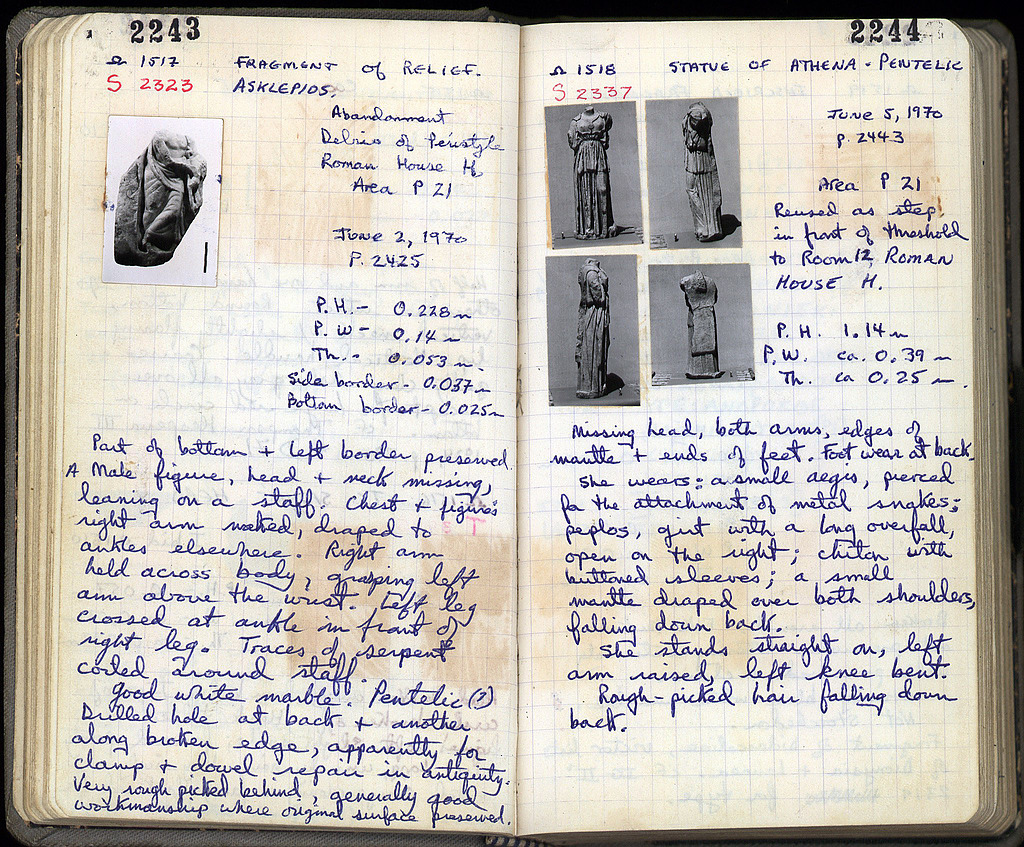 2243
Ω 1517 FRAGMENT of RELIEF.
S 2323 ASKLEPIOS.
Abandonment
Debris of Peristyle
Roman House H,
Area P 21
June 2, 1970
P. 2425
P. H. - 0.228 m
P. W - 0.14 m
Th. - 0.053 m.
Side border - 0.037 m
Bottom border - 0.025 m
Part of bottom + left border preserved.
A Male figure, head + neck missing,
leaning on a staff. Chest + figure's
right arm naked, draped to
ankles elsewhere. Right arm
held across body, grasping left
arm above the wrist. Left leg
crossed at ankle in front of
right leg. Traces of serpent
coiled around staff.
Good white marble. Pentelic (?)
Drilled hole at back + another
along broken edge, apparently for
clamp + dowel repair in antiquity.
Very rough picked behind, generally good
workmanship where original surface preserved.
2244
Ω 1518 STATUE OF ATHENA - PENTELIC
S 2337
June 5, 1970
p. 2443
Area P 21
Reused as step
in front of threshold
to Room 12, ROMAN
HOUSE H.
P. H. 1.14 m
P. W. ca. 0.39 m
Th. ca 0.25 m.
Missing head, both arms, edges of
mantle + ends of feet. Foot wear at back.
She wears: a small aegis, pierced
for the attachment of metal snakes;
peplos, girt with a long overfall,
open on the right; chiton with
buttoned sleeves; a small
mantle draped over both shoulders,
falling down back.
She stands straight on, left
arm raised, left knee bent.
Rough-picked hair falling down
back.